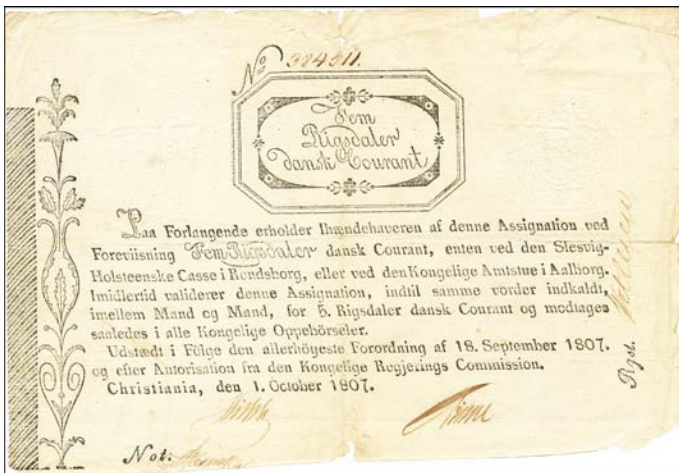 No 384511.
Fem
Rigsdaler
dansk Courant
Paa Forlangende erholder Ihændehaveren af denne Assignation ved
Foreviisning Fem Rigsdaler dansk Courant, enten ved den Slesvig-
Holsteenske Casse i Rendsborg, eller ved den Kongelige Amtstue i Aalborg.
Imidlertid validerer denne Assignation, indtil samme vorder indkaldt,
imellem Mand og Mand, for 5. Rigsdaler dansk Courant og modtages
saaledes i alle Kongelige Oppebörseler.
Udstædt i Fölge den allerhöyeste Forordning af 18. September 1807.
og efter Autorisation fra den Kongelige Regjerings Commission.
Christiania, den 1. October 1807.
Not:
Rgst.